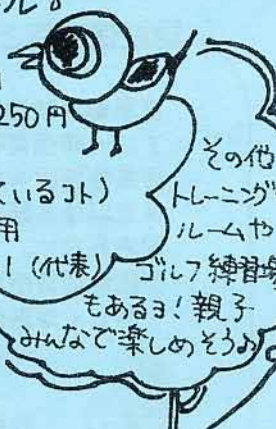 ル。
250円
ているコト)
用
1 (代表)
その他
トレーニング
ルームや
ゴルフ練習場
もあるヨ!親子
みんなで楽しめそう♪